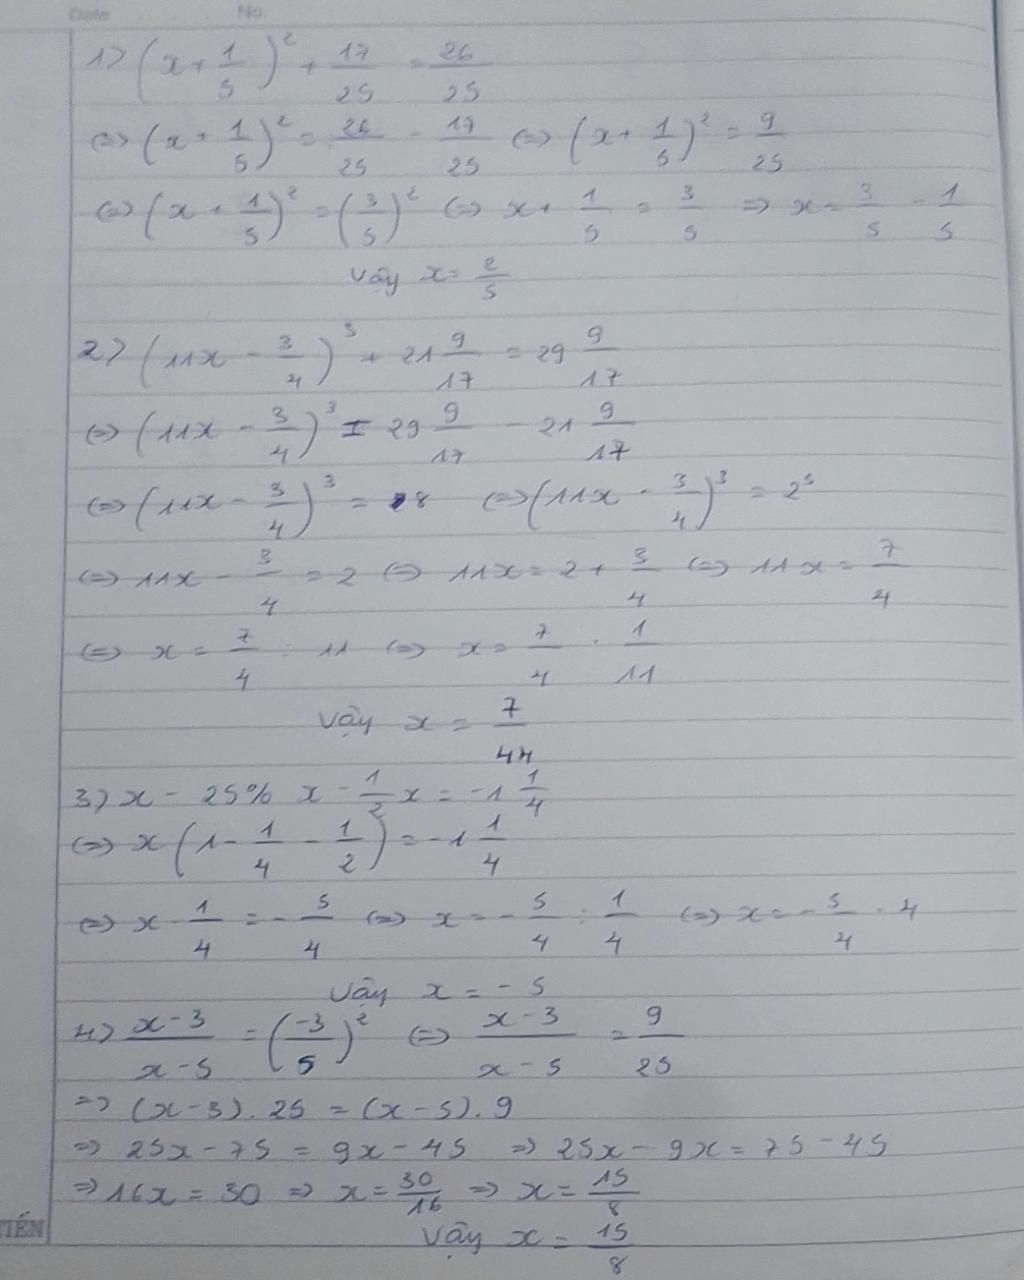 Date No.
1) (x + 1/5)² + 17/25 = 26/25
<=> (x + 1/5)² = 26/25 - 17/25 <=> (x + 1/5)² = 9/25
<=> (x + 1/5)² = (3/5)² <=> x + 1/5 = 3/5 => x = 3/5 - 1/5
Vậy x = 2/5
2) (11x - 3/4)³ + 21 9/17 = 29 9/17
<=> (11x - 3/4)³ = 29 9/17 - 21 9/17
<=> (11x - 3/4)³ = 8 <=> (11x - 3/4)³ = 2³
<=> 11x - 3/4 = 2 <=> 11x = 2 + 3/4 <=> 11x = 7/4
<=> x = 7/4 : 11 <=> x = 7/4 . 1/11
Vậy x = 7/44
3) x - 25% x - 1/2 x = -1 1/4
<=> x (1 - 1/4 - 1/2) = -1 1/4
<=> x 1/4 = - 5/4 <=> x = - 5/4 : 1/4 <=> x = - 5/4 . 4
Vậy x = -5
4) x-3/x-5 = (-3/5)² <=> x-3/x-5 = 9/25
=> (x-3). 25 = (x-5). 9
=> 25x - 75 = 9x - 45 => 25x - 9x = 75 - 45
=> 16x = 30 => x = 30/16 => x = 15/8
Vậy x = 15/8
TIẾN